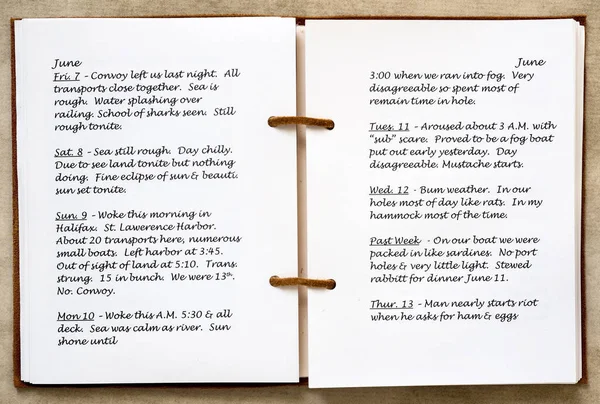 June
Fri. 7 - Convoy left us last night. All
transports close together. Sea is
rough. Water splashing over
railing. School of sharks seen. Still
rough tonite.
Sat. 8 - Sea still rough. Day chilly.
Due to see land tonite but nothing
doing. Fine eclipse of sun & beauti.
sun set tonite.
Sun. 9 - Woke this morning in
Halifax. St. Lawerence Harbor.
About 20 transports here, numerous
small boats. Left harbor at 3:45.
Out of sight of land at 5:10. Trans.
strung. 15 in bunch. We were 13th.
No. Convoy.
Mon 10 - Woke this A.M. 5:30 & all
deck. Sea was calm as river. Sun
shone until
June
3:00 when we ran into fog. Very
disagreeable so spent most of
remain time in hole.
Tues. 11 - Aroused about 3 A.M. with
"sub" scare. Proved to be a fog boat
put out early yesterday. Day
disagreeable. Mustache starts.
Wed. 12 - Bum weather. In our
holes most of day like rats. In my
hammock most of the time.
Past Week - On our boat we were
packed in like sardines. No port
holes & very little light. Stewed
rabbitt for dinner June 11.
Thur. 13 - Man nearly starts riot
when he asks for ham & eggs